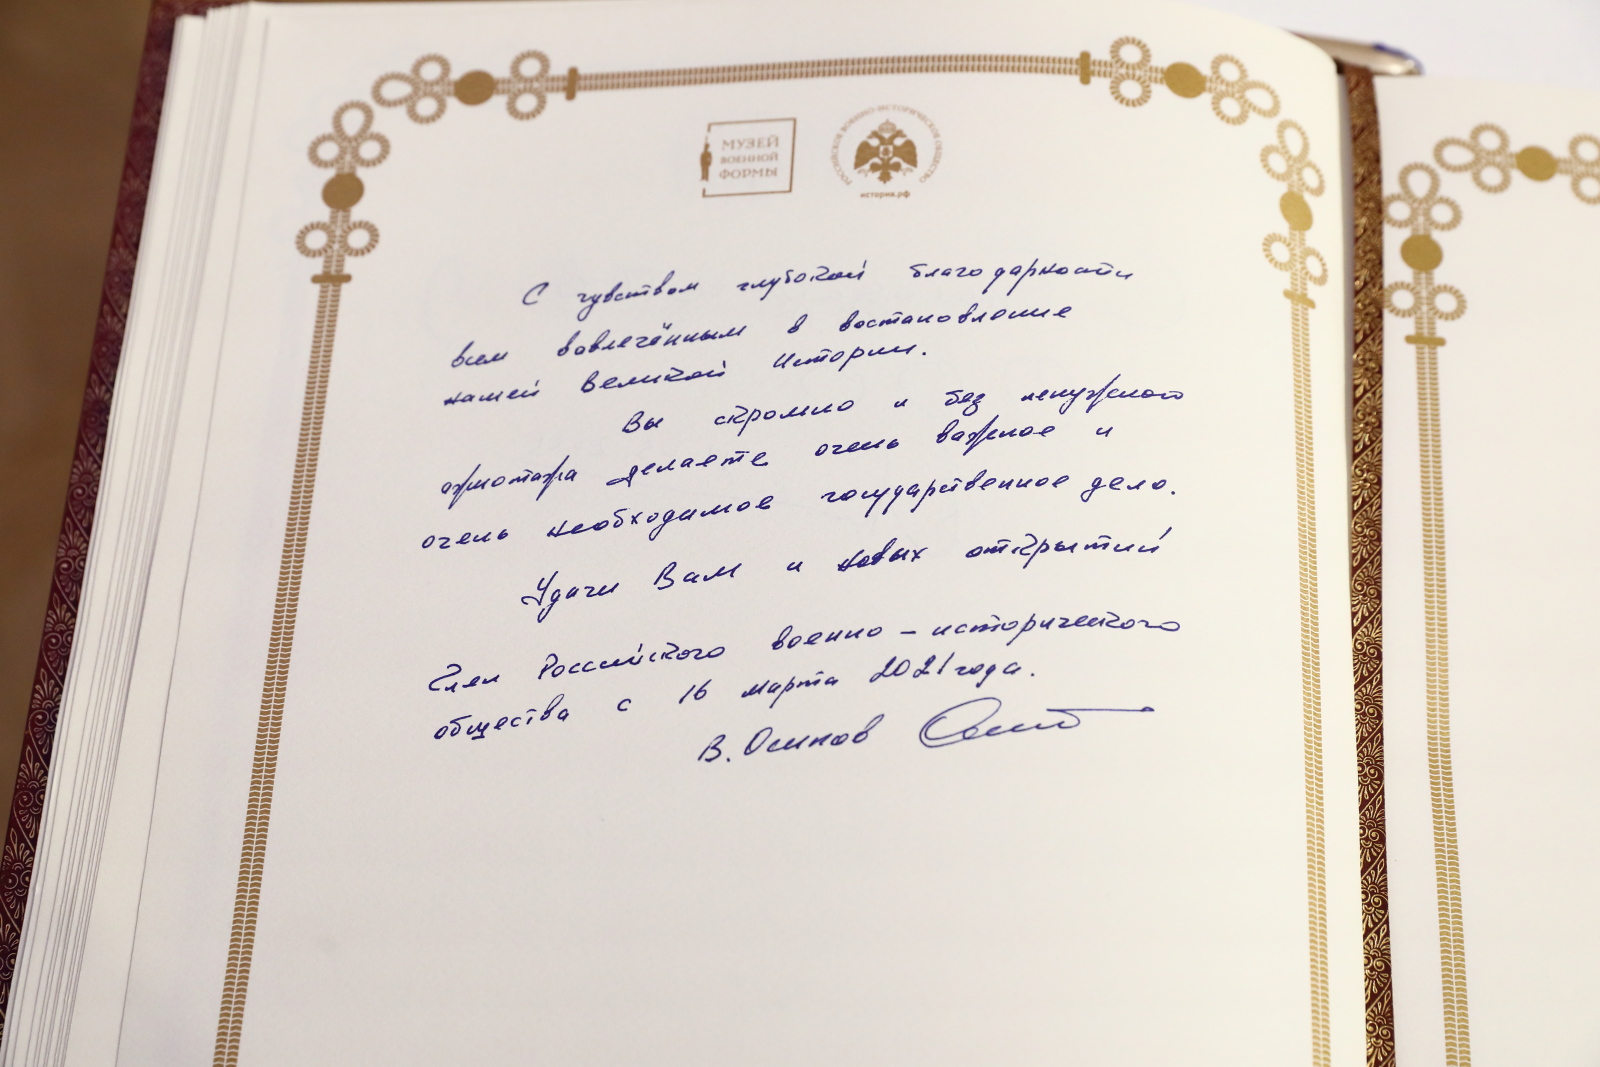 МУЗЕЙ
ВОЕННОЙ
ФОРМЫ
РОССИЙСКОЕ ВОЕННО-ИСТОРИЧЕСКОЕ ОБЩЕСТВО
история.рф
С чувством глубокой благодарности
всем вовлечённым в востановление
нашей Великой Истории.
Вы скромно и без ненужного
ажиотажа делаете очень важное и
очень необходимое государственное дело.
Удачи Вам и новых открытий
Член Российского военно-исторического
общества с 16 марта 2021 года.
В. Осипов